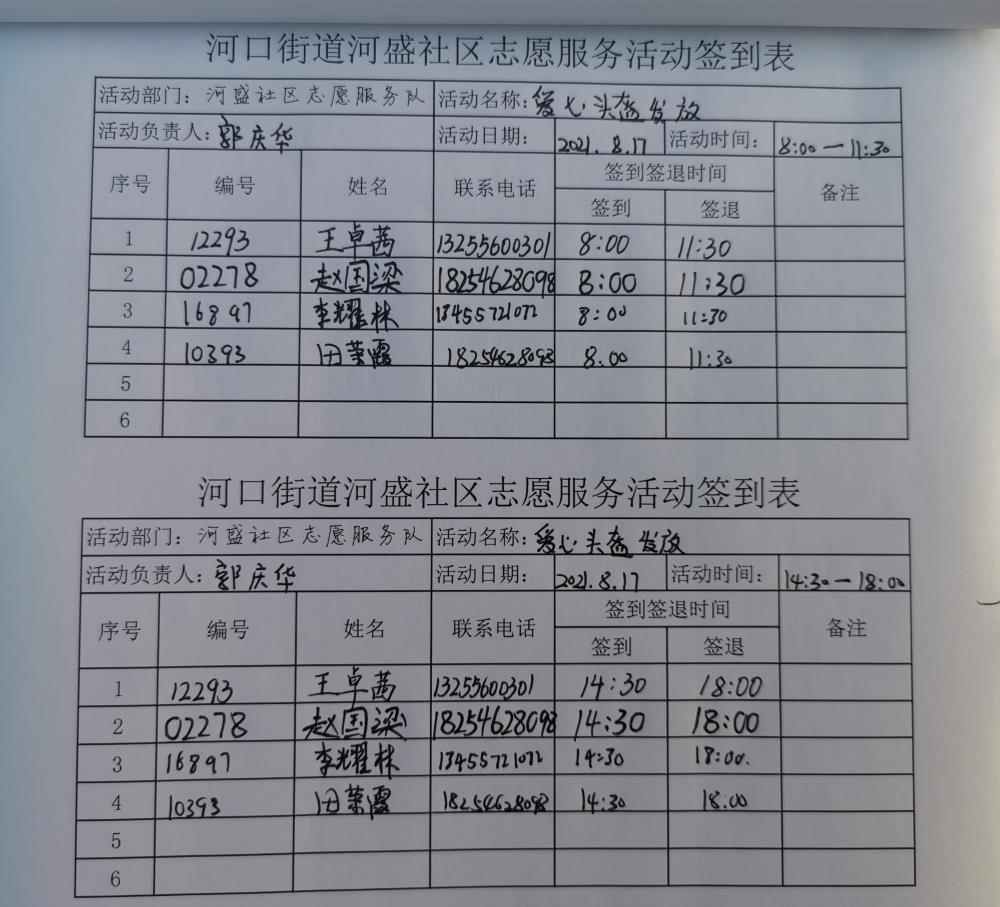 河口街道河盛社区志愿服务活动签到表
活动部门：河盛社区志愿服务队 活动名称：爱心头盔发放
活动负责人：郭庆华 活动日期： 2021.8.17 活动时间： 8:00—11:30
序号 编号 姓名 联系电话 签到签退时间 备注
签到 签退
1 12293 王卓茜 13255600301 8:00 11:30
2 02278 赵国梁 18254628098 8:00 11:30
3 16897 李耀林 13455721072 8:00 11:30
4 10393 田荣霞 18254628098 8.00 11:30
5
6
河口街道河盛社区志愿服务活动签到表
活动部门：河盛社区志愿服务队 活动名称：爱心头盔发放
活动负责人：郭庆华 活动日期： 2021.8.17 活动时间： 14:30—18:00
序号 编号 姓名 联系电话 签到签退时间 备注
签到 签退
1 12293 王卓茜 13255600301 14:30 18:00
2 02278 赵国梁 18254628098 14:30 18:00
3 16897 李耀林 13455721072 14:30 18:00.
4 10393 田荣霞 18254628098 14:30 18:00
5
6